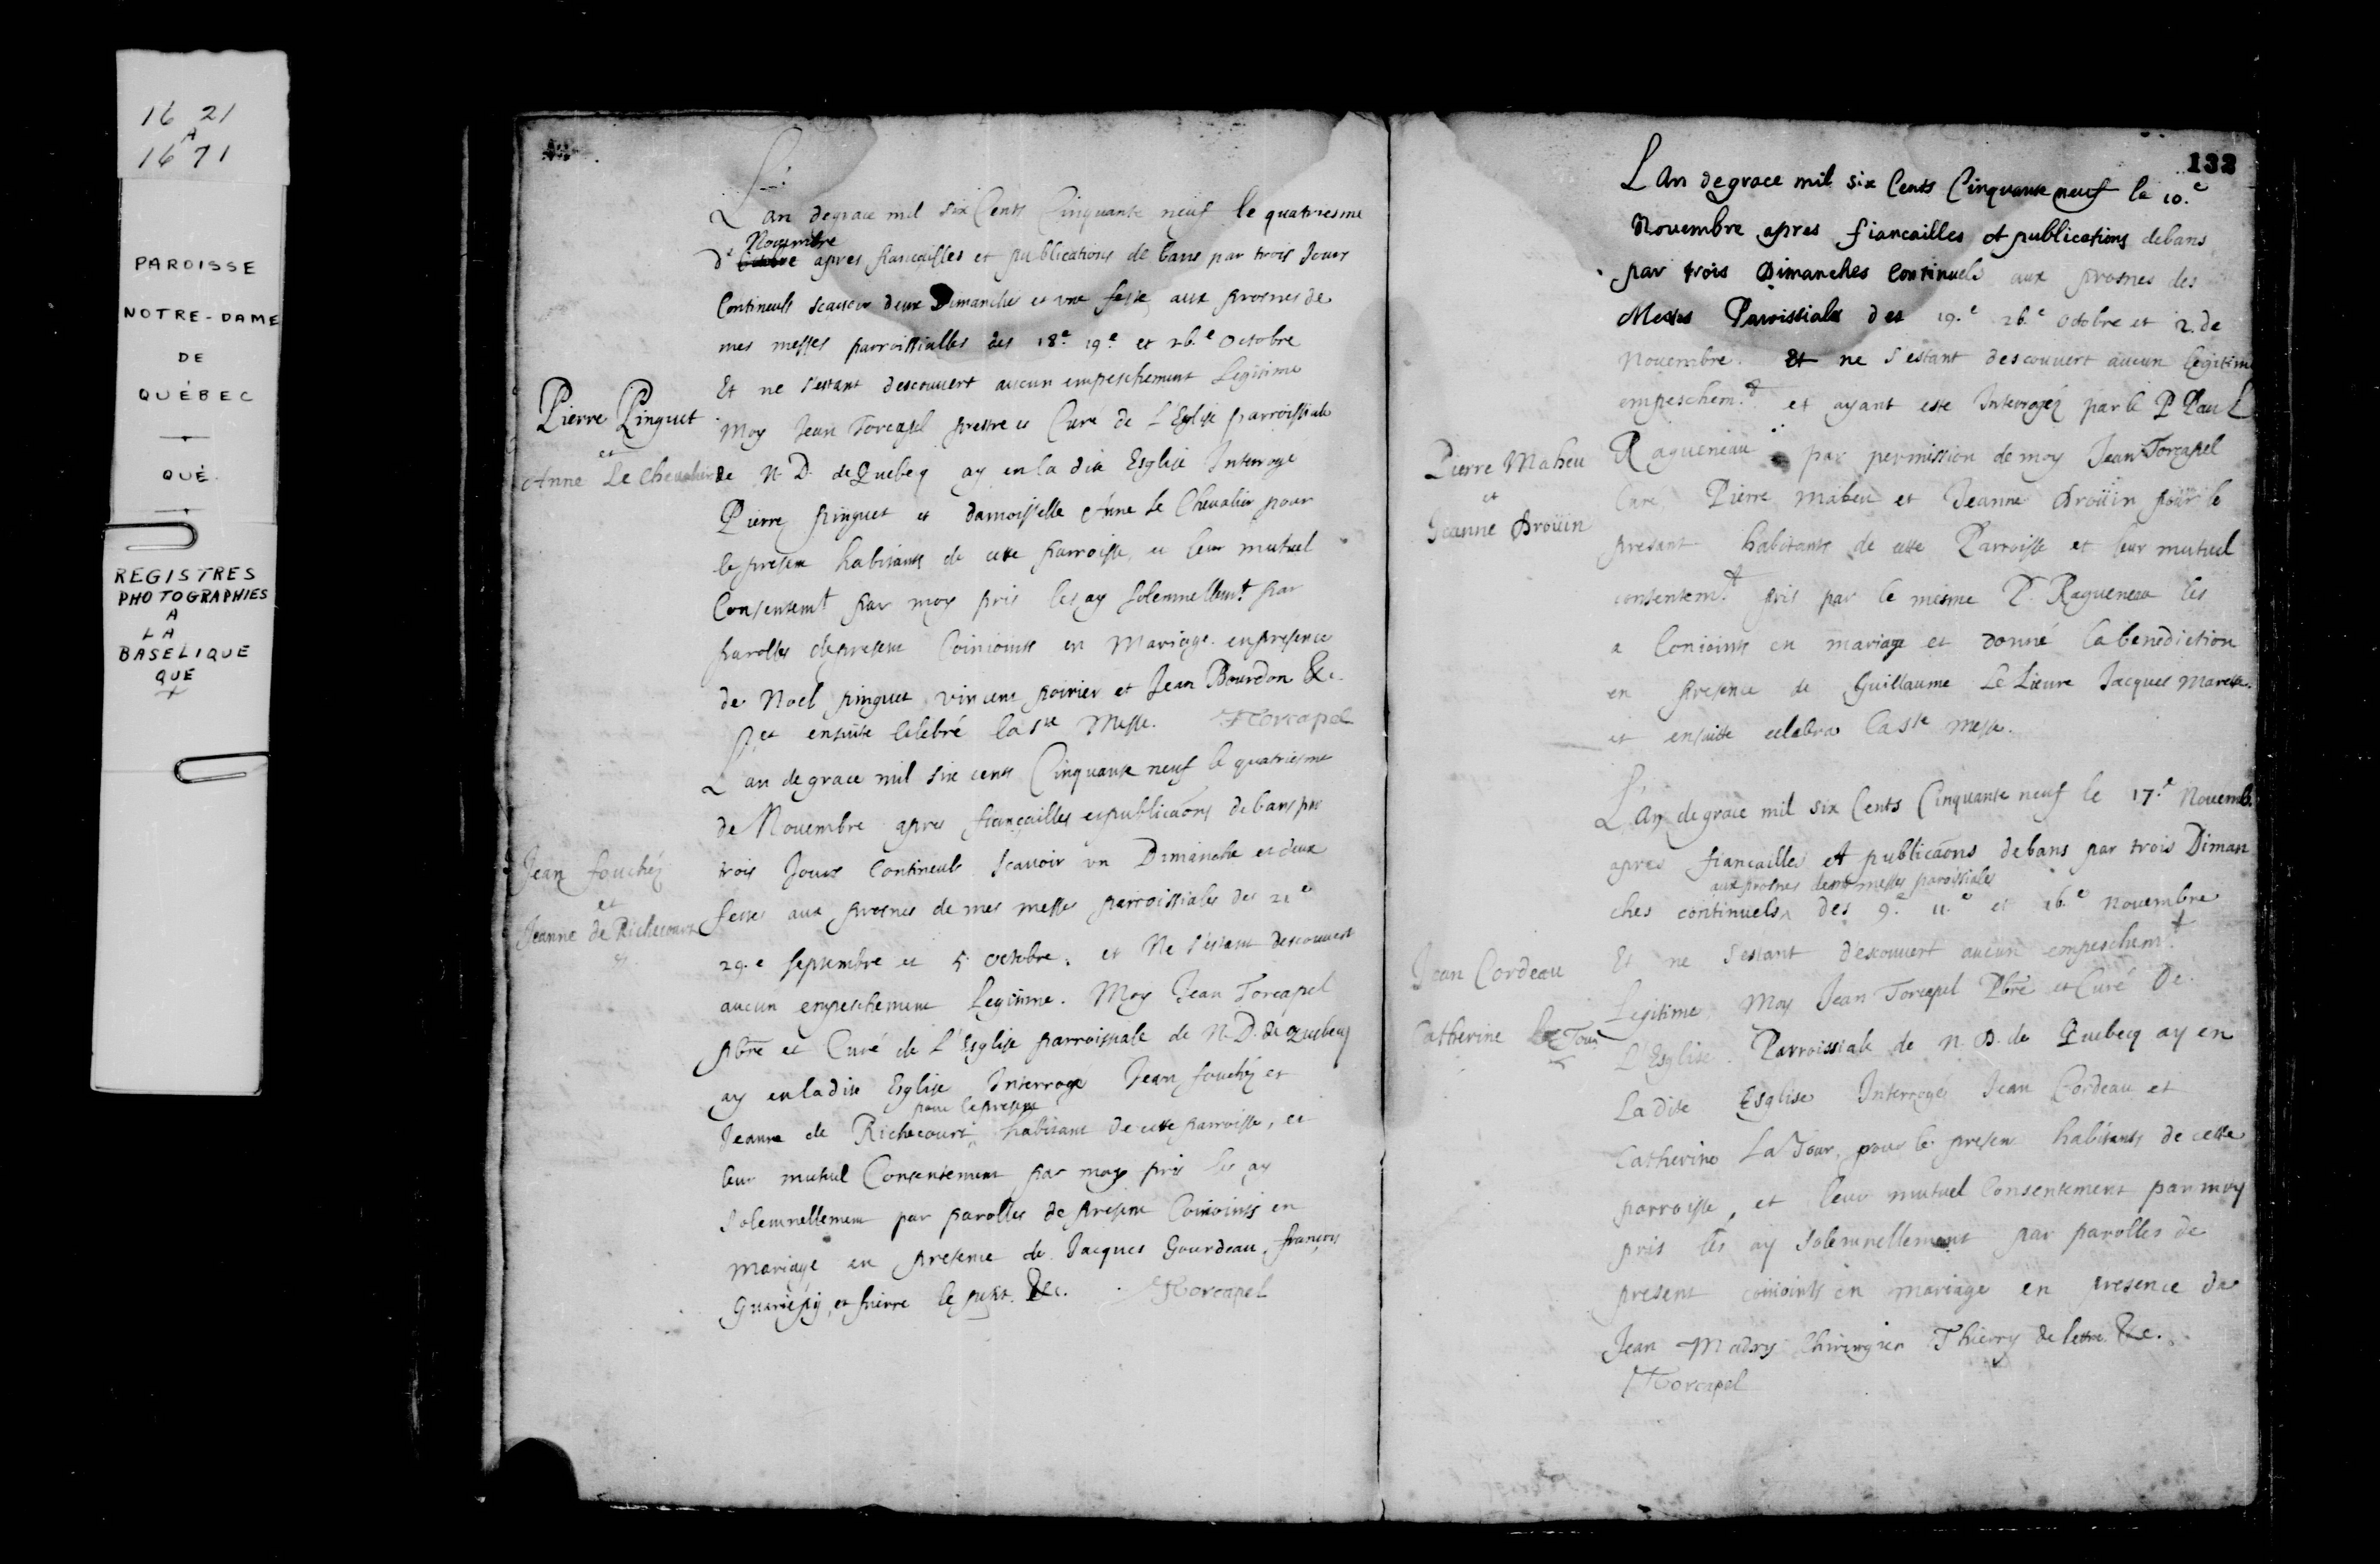 16 21
A
16 71
PAROISSE
NOTRE-DAME
DE
QUÉBEC
QUÉ.
REGISTRES
PHOTOGRAPHIES
A
LA
BASELIQUE
QUE
L'an degrace mil six Cents Cinquante neuf le quatriesme
Nouembre
d' octobre apres fiancailles et publications de bans par trois Jours
Continuels scauoir deux Dimanches et vne feste aux prosnes de
mes messes parroissialles des 18.e 19.e et 26.e Octobre
Et ne s'estant descouuert aucun empeschement Legitime
Pierre Pinguet
et
Anne Le Cheualier
Moy Jean Torcapel prestre et Cure de L'Eglise parroissiale
de N. D. de Quebeq ay en la dite Esglise Interroge
Pierre pinguet et damoiselle Anne le Cheualier pour
le present habitants de cette parroisse, et leur mutuel
Consentemt par moy pris les ay solemnellemt par
parolles de present Conioints en Mariage en presence
de Noel pinguet vincent poirier et Jean Bourdon &c.
et ensuitte celebré la ste Messe. JTorcapel
L'an de grace mil six cents Cinquante neuf le quatriesme
de Nouembre apres fiançailles et publicaons de bans par
Jean fouchéz
et
Jeanne de Richecourt
trois Jours Continuels scauoir vn Dimanche et deux
festes aux prosnes de mes messes parroissiales des 21e
29.e septembre et 5 octobre. et Ne s'estant descouuert
aucun empeschement Legitime. Moy Jean Torcapel
pbre et Curé de L'Esglise parroissiale de N. D. de Quebecq
ay en ladite Eglise Interrogé Jean fouchéz et
pour le present
Jeanne de Richecourt habitant de cette parroisse, et
leur mutuel Consentement par moy pris les ay
solemnellement par parolles de present Conioints en
mariage en presence de Jacques Gourdeau, françois
Guariépÿ, et pierre le petit. &c. JTorcapel
132
L An degrace mil six Cents Cinquante neuf le 10.e
Nouembre apres fiancailles et publications debans
par trois Dimanches Continuels aux prosnes des
Messes Parroissiales des 19.e 26.e Octobre et 2. de
Nouembre. Et ne s'estant descouuert aucun legitime
empeschem.t et ayant este Interrogéz par le P Paul
Pierre Maheu
et
Jeanne Droüin
Ragueneau par permission de moy Jean Torcapel
Cure Pierre maheu et Jeanne Droüin pour le
present habitants de cette Parroisse et leur mutuel
consentem.t pris par le mesme P. Ragueneau les
a Conioints en mariage et donné la benediction
en presence de Guillaume Le Lieure Jacques Marette
et ensuitte celebra la Ste Messe.
L'An de grace mil six Cents Cinquante neuf le 17.e Nouemb.
apres fiancailles et publicaons debans par trois Diman
aux prosnes de mes messes paroissiales
ches continuels des 9.e 11.e et 16.e Nouembre
Et ne s'estant descouuert aucun empeschem.t
Jean Cordeau
Catherine La Tour
Legitime, Moy Jean Torcapel Pbre et Curé De
L'Esglise Parroissiale de N. D. de Quebecq ay en
Ladite Esglise Interrogéz Jean Cordeau et
Catherine La Tour, pour le present habitants de cette
parroisse, et leur mutuel Consentement par moy
pris les ay solemnellement par parolles de
present conioints en mariage en presence de
Jean Madry Chirurgien Thierry de lettre &c.
JTorcapel